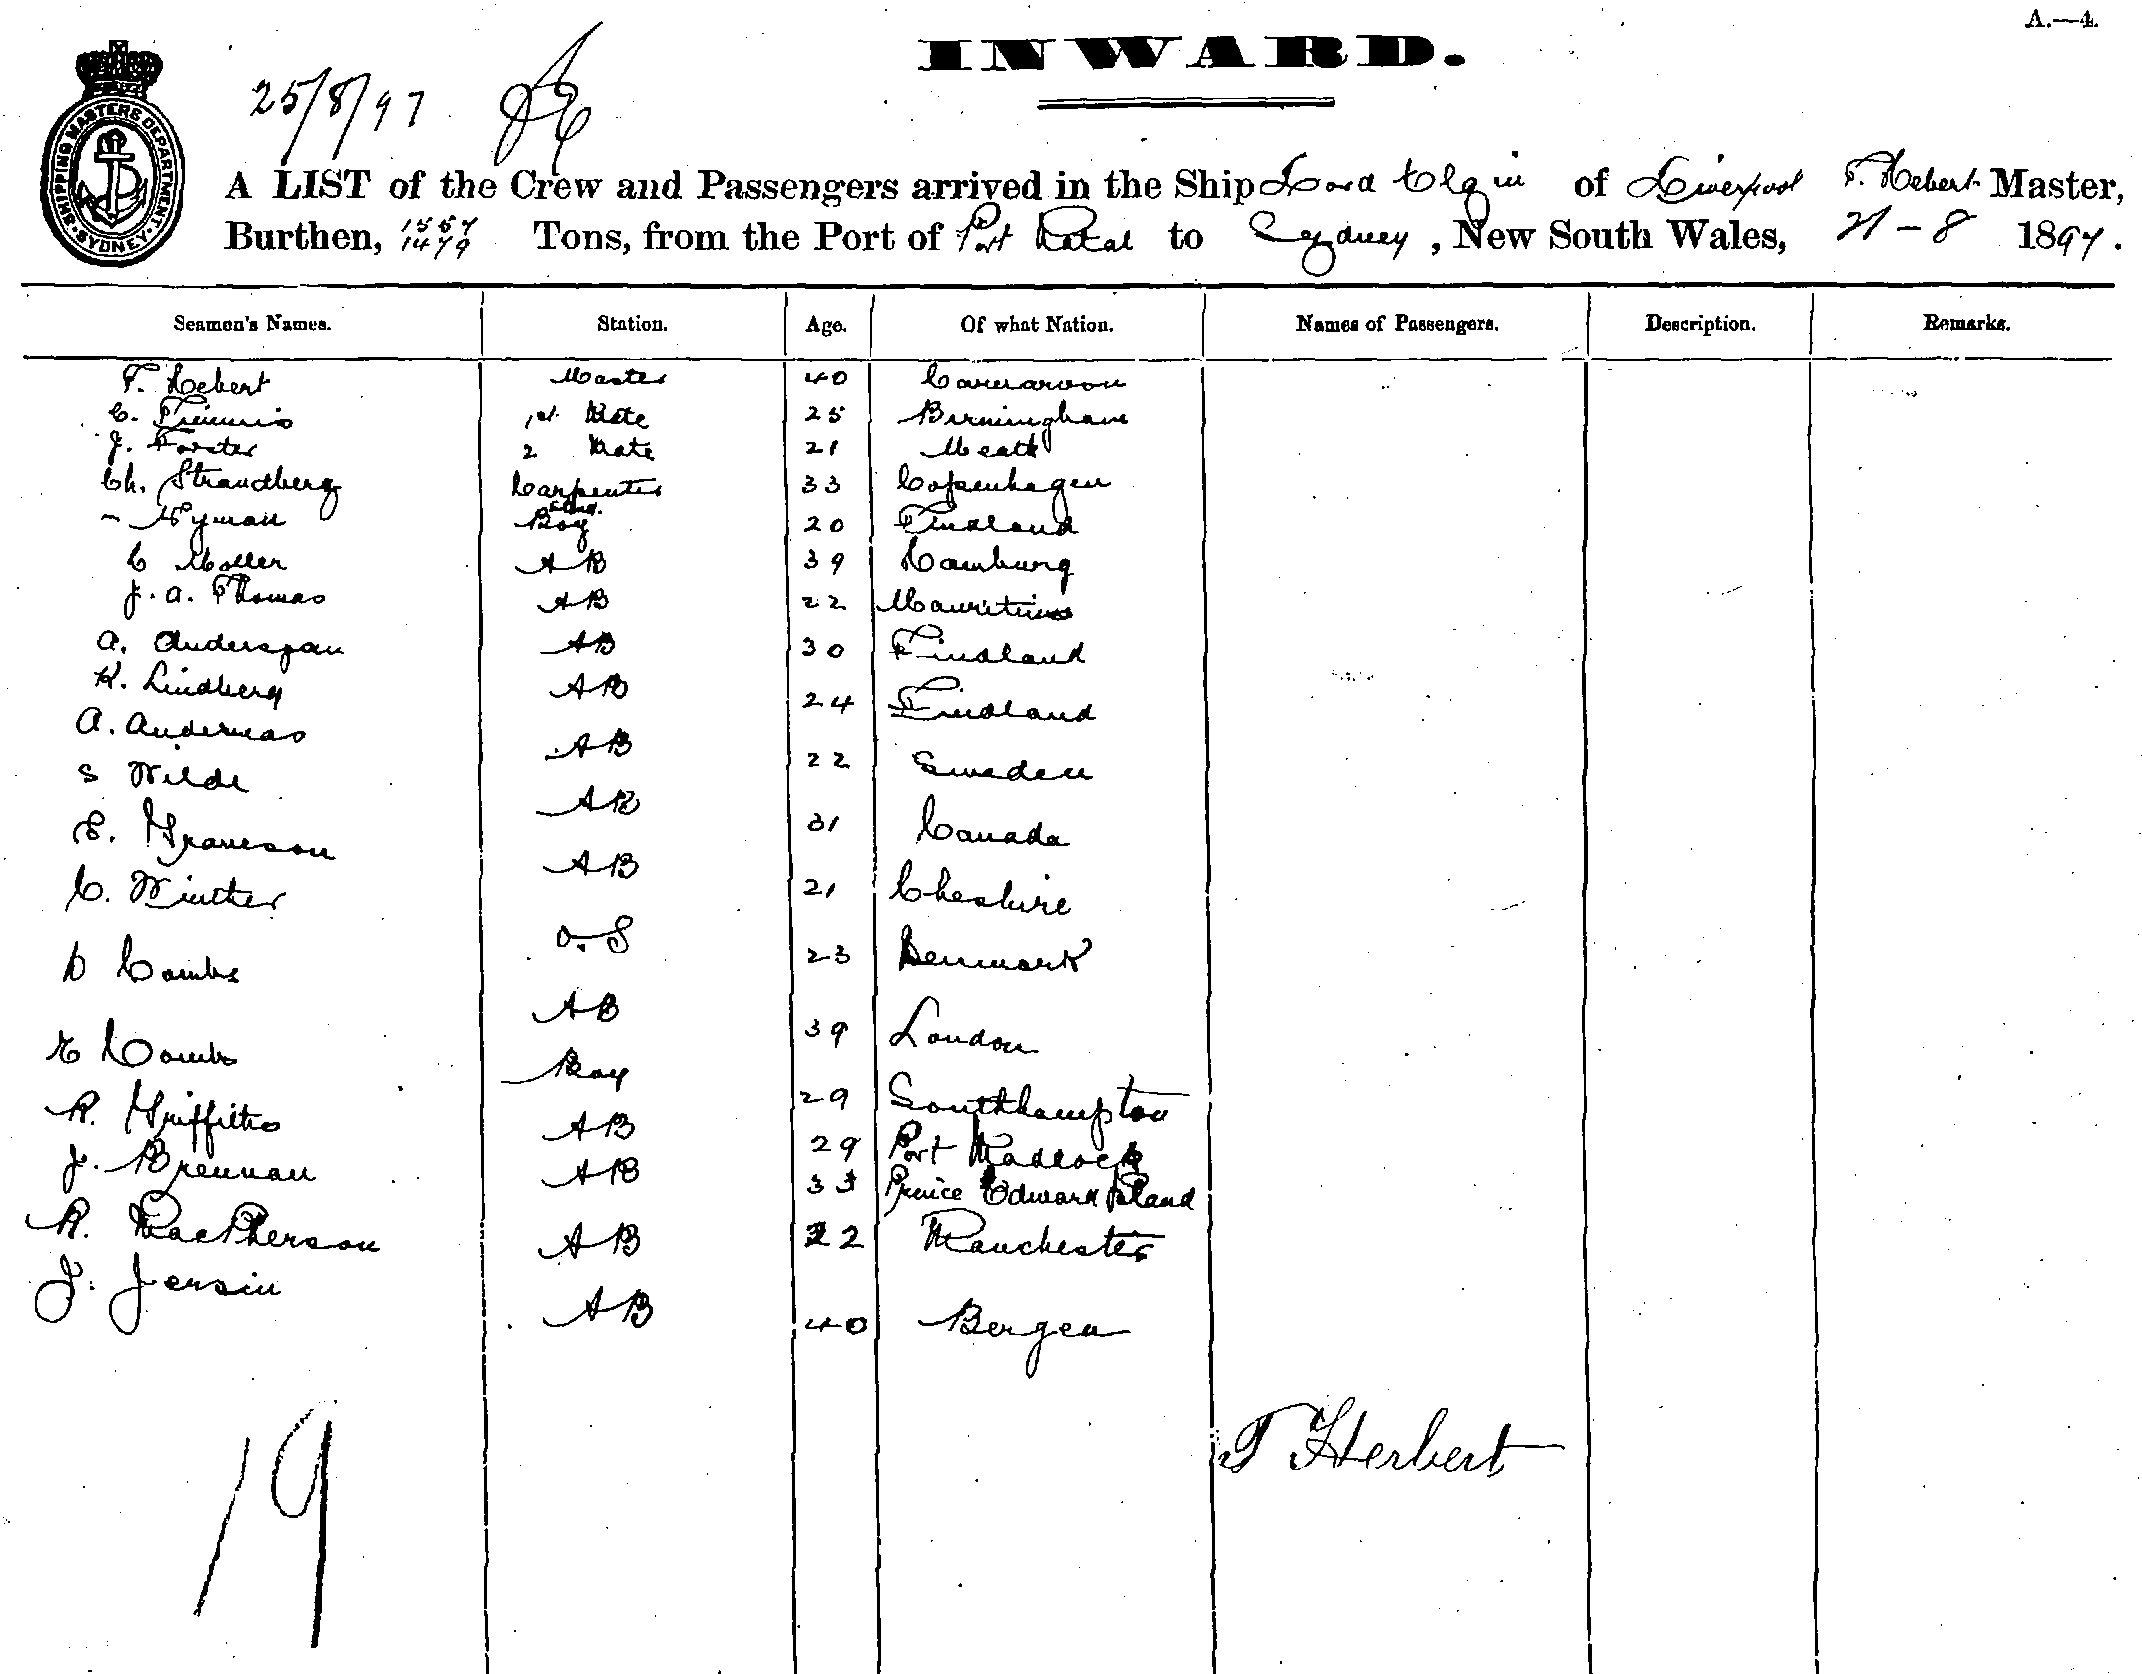 A.—4.
INWARD.
25/8/97
SHIPPING MASTERS DEPARTMENT SYDNEY
A LIST of the Crew and Passengers arrived in the Ship Lord Elgin of Liverpool T. Hebert Master,
Burthen, 1557 1479 Tons, from the Port of Port Natal to Sydney, New South Wales, 21-8 1897.
Seamen's Names. Station. Age. Of what Nation. Names of Passengers. Description. Remarks.
T. Hebert Master 40 Carnarvon
C. Timmis 1st Mate 25 Birmingham
J. Forster 2 Mate 21 Meath
Ch. Strandberg Carpenter 33 Copenhagen
- Nyman Boy 20 Findland
C Moller AB 39 Hamburg
J. A. Thomas AB 22 Mauritius
A. AB 30 Findland
K. Lindberg AB 24 Findland
A. AB 22 Sweden
S Wilde AB 31 Canada
E. Graveson AB 21 Cheshire
C. Winther O.S 23 Denmark
D Combs AB 39 London
E Combs Boy 29 Southampton
R. Griffiths AB 29 Port Madlock
J. Brennan AB 33 Prince Edward Island
R. MacPherson AB 22 Manchester
J. Jersin AB 40 Bergen
T Herbert
19